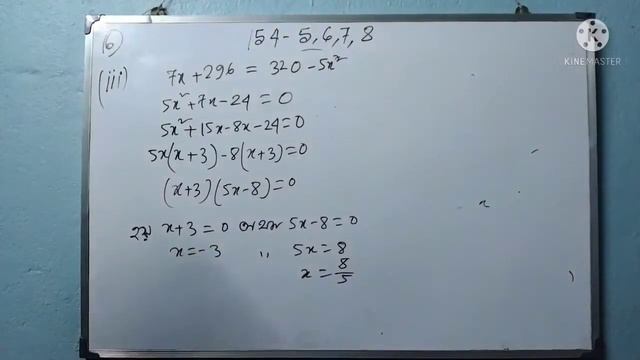 6 154-5,6,7,8
KINEMASTER
(iii) 7x+296 = 320-5x²
5x²+7x-24=0
5x²+15x-8x-24=0
5x(x+3)-8(x+3)=0
(x+3)(5x-8)=0
x+3=0 5x-8=0
x=-3 ,, 5x=8
x=8/5